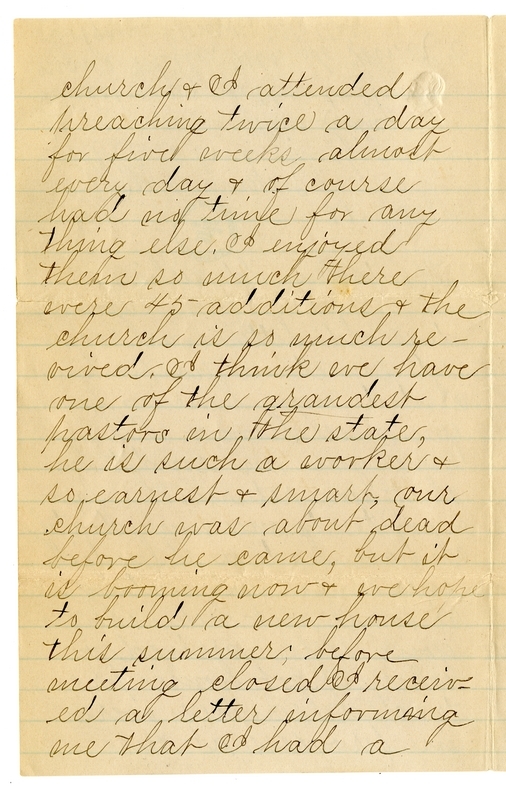 church & I attended
preaching twice a day
for five weeks almost
every day & of course
had no time for any
thing else. I enjoyed
them so much there
were 45 additions & the
church is so much re-
vived. I think we have
one of the grandest
pastors in the state,
he is such a worker &
so earnest & smart, our
church was about dead
before he came, but it
is booming now & we hope
to build a new house
this summer; before
meeting closed I receiv-
ed a letter informing
me that I had a